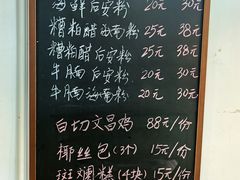 海鲜后安粉 20元 30元
糟粕醋海南粉 25元 38元
糟粕醋后安粉 25元 38元
牛腩后安粉 20元 30元
牛腩海南粉 20元 30元
白切文昌鸡 88元/份
椰丝包(3个) 15元/份
斑斓糕(4块) 15元/份